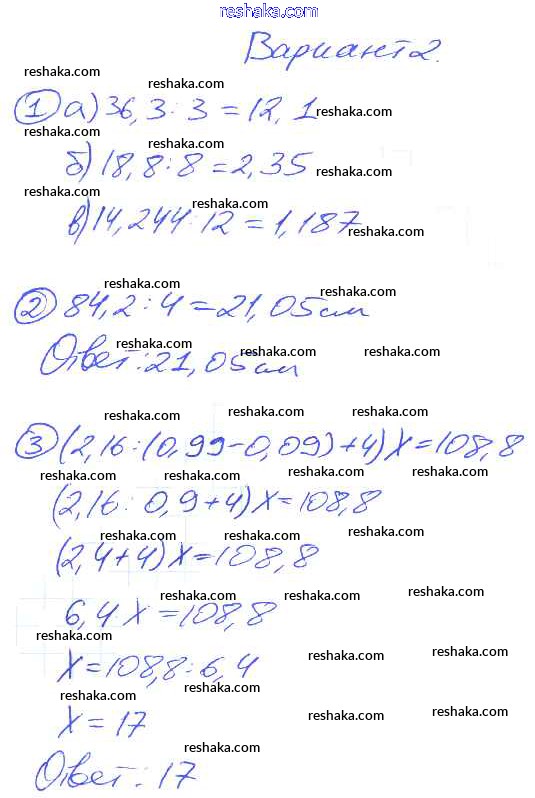 reshaka.com
Вариант 2.
reshaka.com
reshaka.com
① а) 36,3 : 3 = 12,1
reshaka.com
reshaka.com
reshaka.com
б) 18,8 : 8 = 2,35
reshaka.com
reshaka.com
reshaka.com
в) 14,244 : 12 = 1,187
reshaka.com
reshaka.com
reshaka.com
② 84,2 : 4 = 21,05 см
reshaka.com reshaka.com reshaka.com
Ответ: 21,05 см
reshaka.com reshaka.com reshaka.com
③ (2,16 : (0,99 - 0,09) + 4) X = 108,8
reshaka.com reshaka.com reshaka.com reshaka.com
(2,16 : 0,9 + 4) X = 108,8
reshaka.com reshaka.com reshaka.com
(2,4 + 4) X = 108,8
reshaka.com reshaka.com reshaka.com reshaka.com
6,4 X = 108,8
reshaka.com reshaka.com reshaka.com
X = 108,8 : 6,4
reshaka.com reshaka.com reshaka.com reshaka.com
X = 17
reshaka.com
Ответ: 17